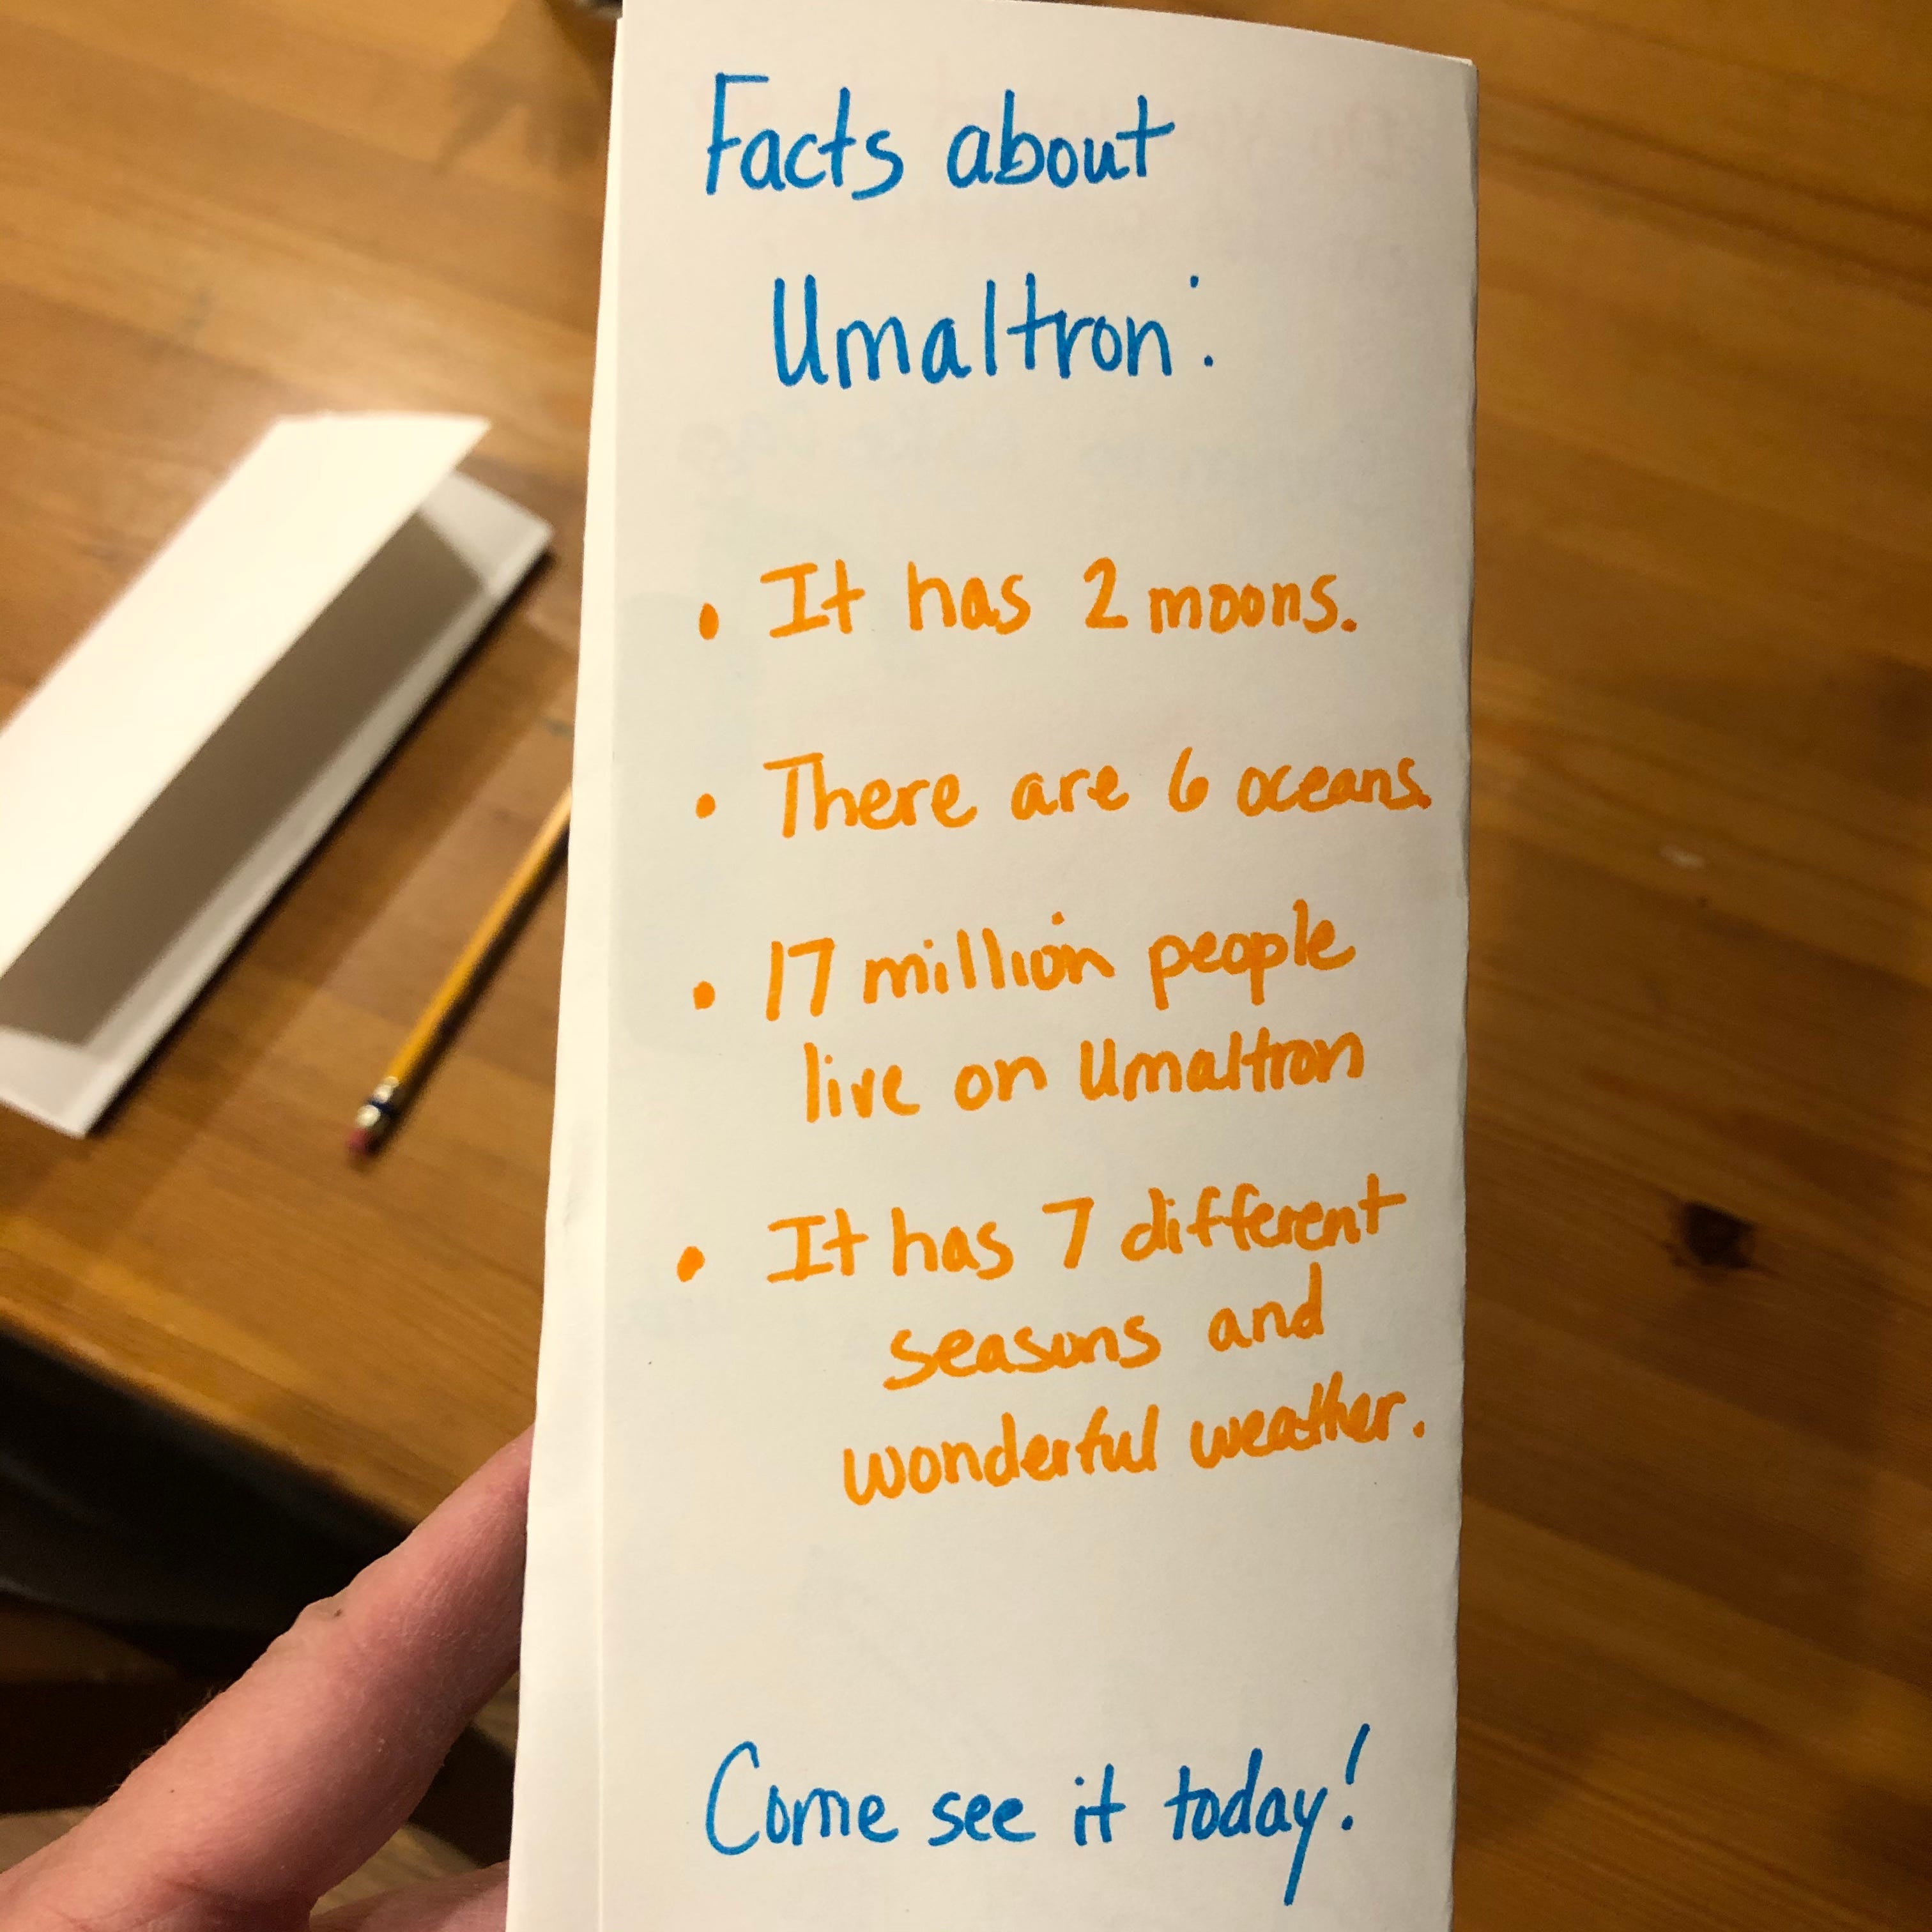 Facts about
Umaltron:
• It has 2 moons.
• There are 6 oceans.
• 17 million people
live on Umaltron
• It has 7 different
seasons and
wonderful weather.
Come see it today!